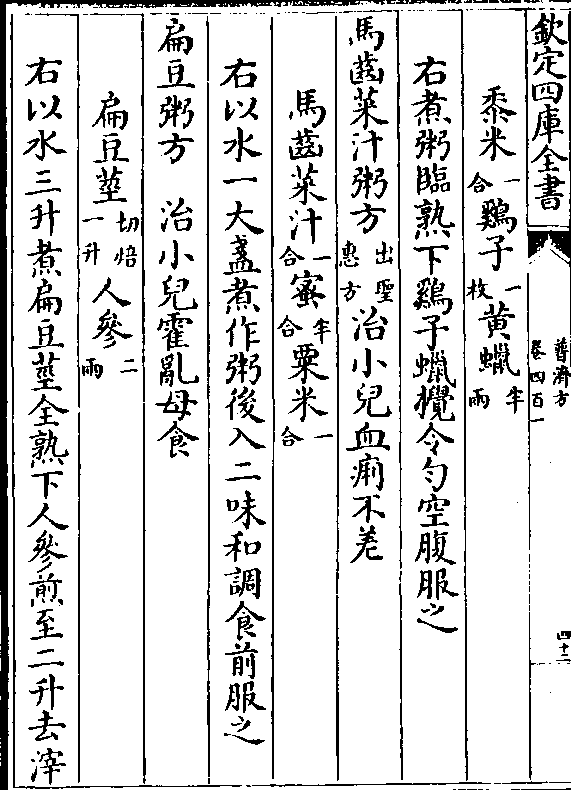 欽定四庫全書
普濟方
卷四百一
四十二
黍米一合鷄子一枚黄蠟半兩
右煮粥臨熟下鷄子蠟攪令匀空腹服之
馬齒菜汁粥方出聖惠方治小兒血痢不差
馬齒菜汁一合蜜半合粟米一合
右以水一大盞煮作粥後入二味和調食前服之
扁豆粥方　治小兒霍亂母食
扁豆莖切焙一升人參二兩
右以水三升煮扁豆莖全熟下人參煎至二升去滓